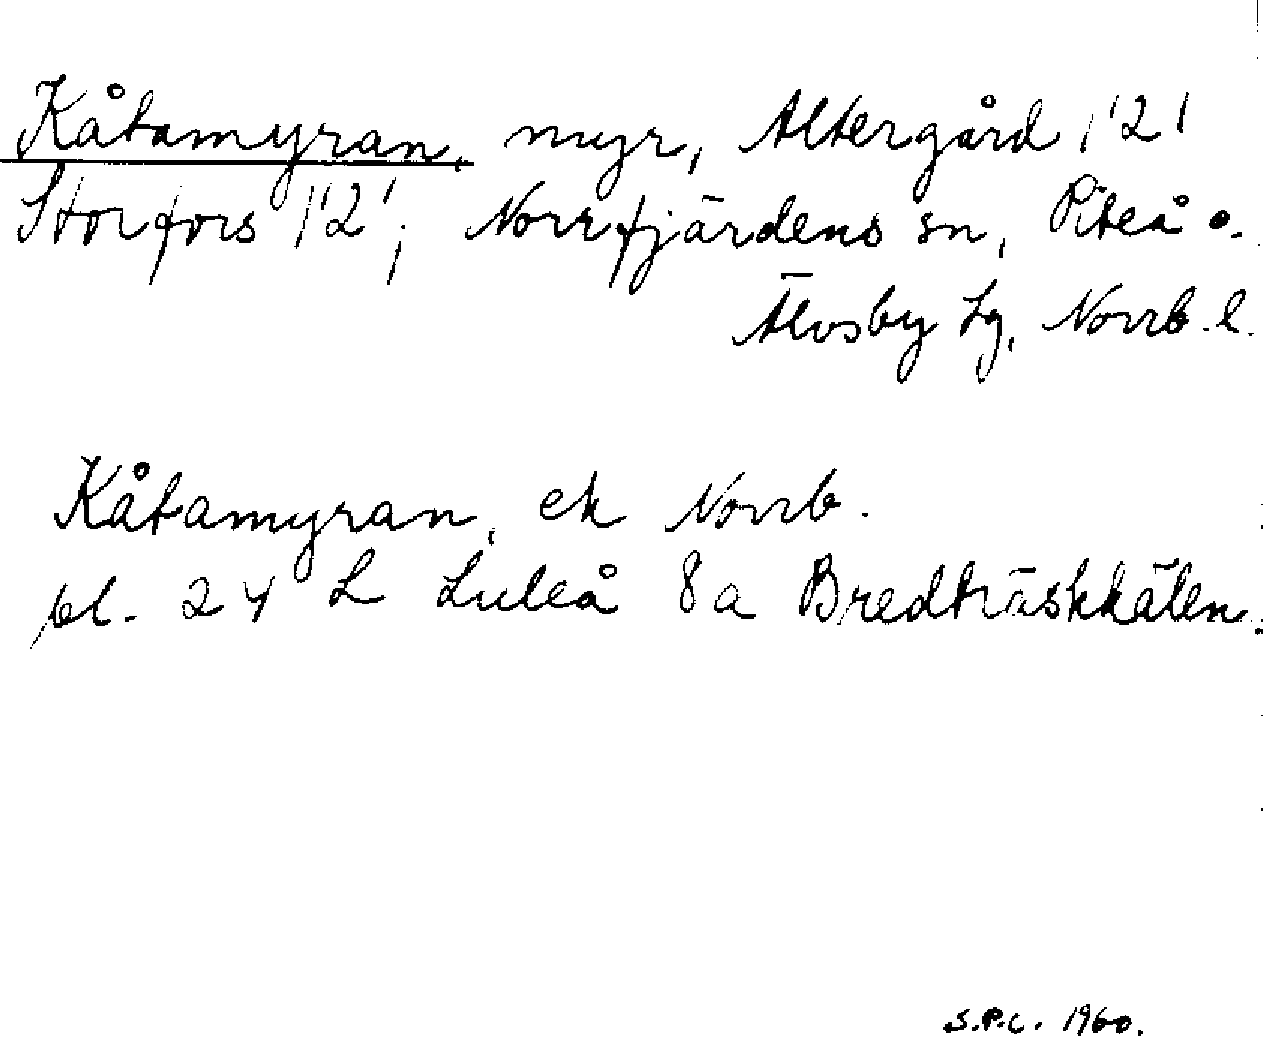 Kåtamyran, myr, Altergård 1'2'
Storfors 1'2'; Norrfjärdens sn, Piteå o.
Älvsby tg, Norrb. l.
Kåtamyran, ek Norrb.
bl. 24 L Luleå 8a Bredträskkälen.
S.P.C. 1960.